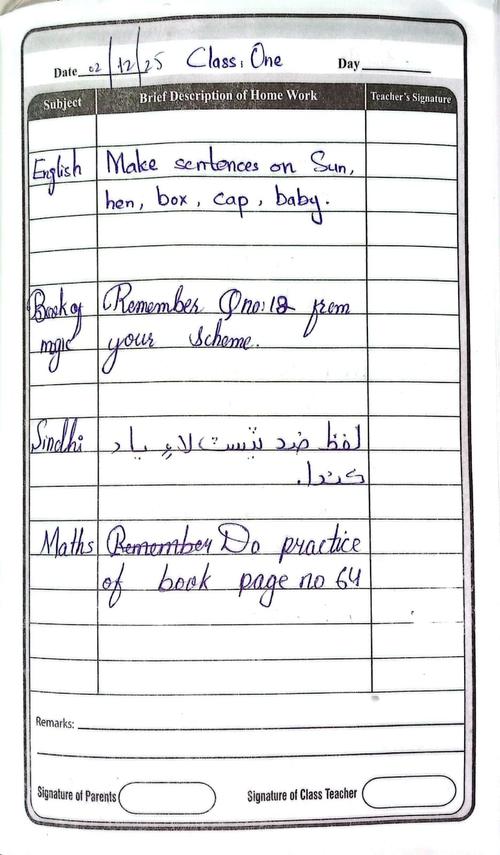 Date 02/12/25 Class: One Day
Subject Brief Description of Home Work Teacher's Signature
English Make sentences on Sun,
hen, box, cap, baby.
Book of Remember Q no: 12 from
magic your scheme.
Sindhi لفظ ضد ٽيسٽ لاءِ ياد
ڪندا.
Maths Remember Do practice
of book page no 64
Remarks:
Signature of Parents Signature of Class Teacher